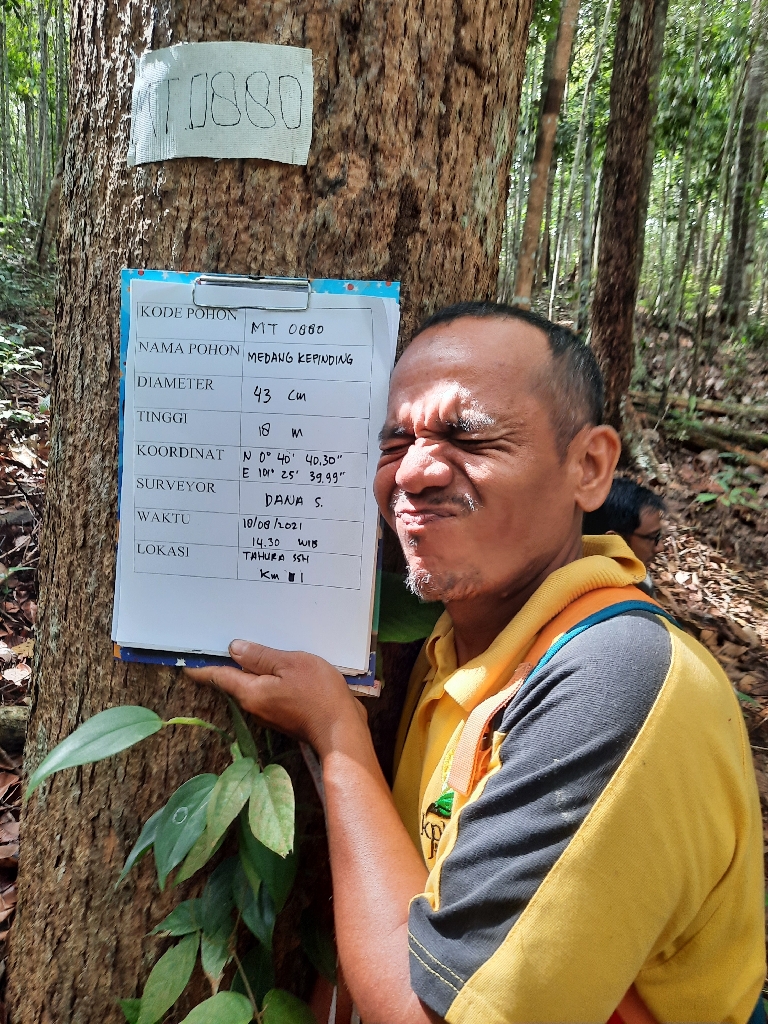 MT.0880
KODE POHON MT 0880
NAMA POHON MEDANG KEPINDING
DIAMETER 43 cm
TINGGI 18 m
KOORDINAT N 0° 40' 40.30"
E 101° 25' 39.99"
SURVEYOR DANA S.
WAKTU 10/08/2021
14.30 WIB
LOKASI TAHURA SSH
Km 1